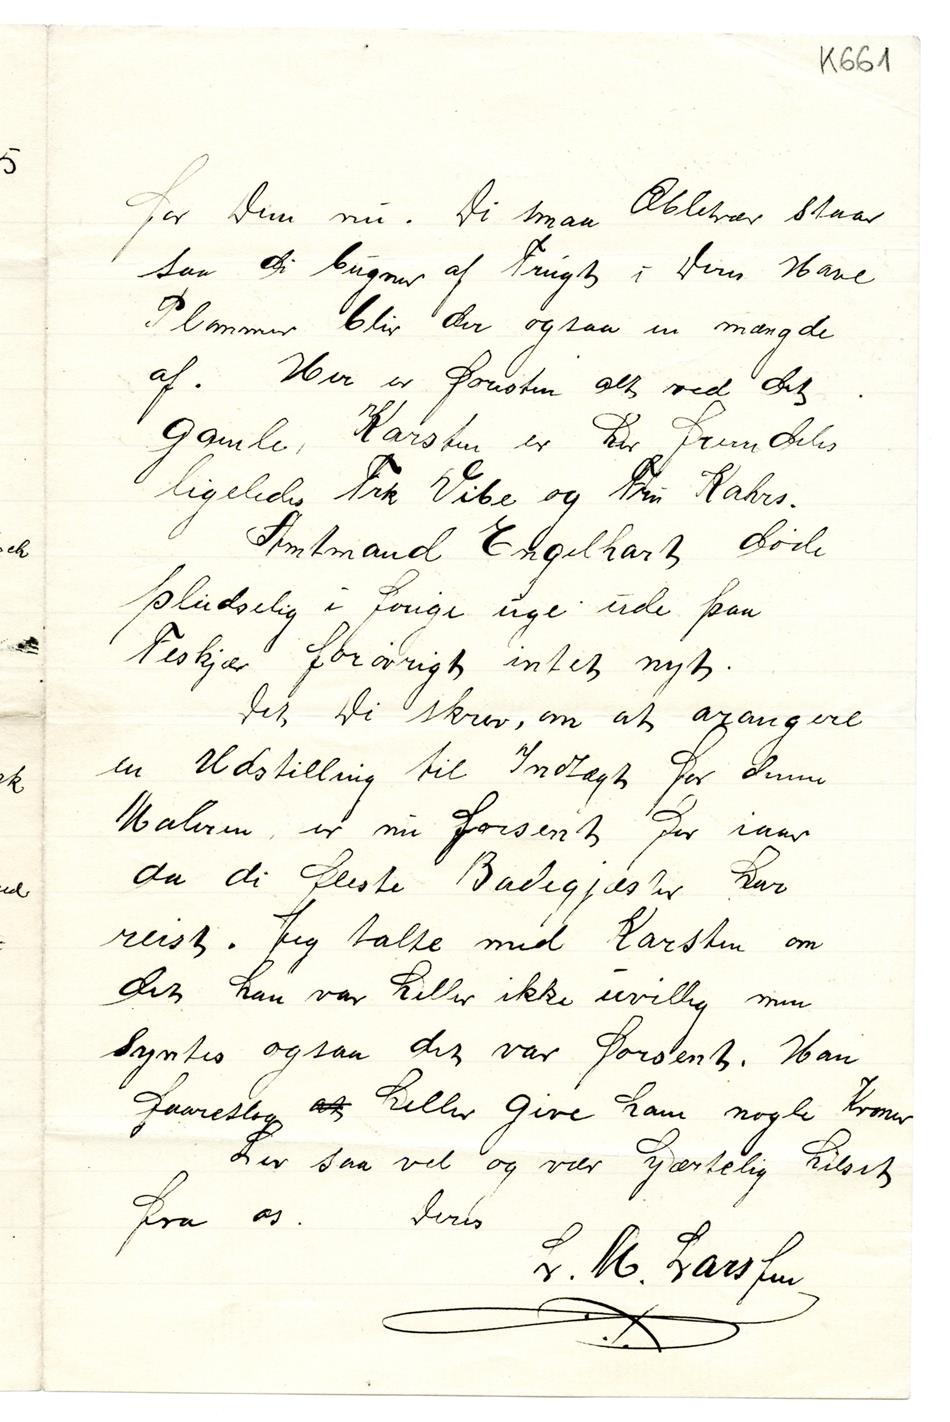 K661
5
for Dem nu. Di smaa Æbletrær staar
saa di bugner af Frugt i Deres Have
Plommer blir der ogsaa en mængde
af. Her er foresten alt ved det
gamle, Karsten er her fremdeles
ligeledes Frk Vibe og Fru Kahrs.
Amtmand Engelhart døde
pludselig i forige uge ude paa
Teskjær forövrigt intet nyt.
Det Di skrev, om at arangere
en Udstilling til Indtægt for denne
Maleren, er nu forsent for iaar
da di fleste Badegjæster har
reist. Jeg talte med Karsten om
det han var heller ikke uvillig men
syntes ogsaa det var forsent. Han
faareslog at heller give ham nogle Kroner
Lev saa vel og vær hjærtelig hilset
fra os. Deres
L. M. Larssen